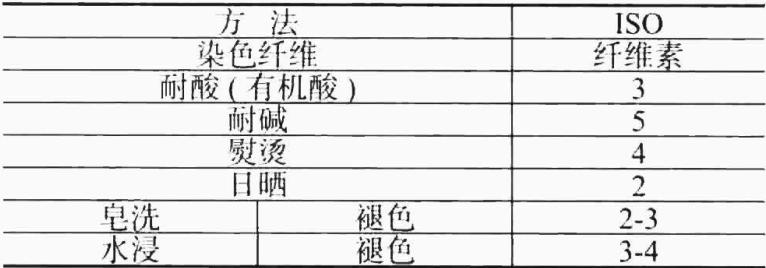 方 法 ISO
染色纤维 纤维素
耐酸(有机酸) 3
耐碱 5
熨烫 4
日晒 2
皂洗 褪色 2-3
水浸 褪色 3-4